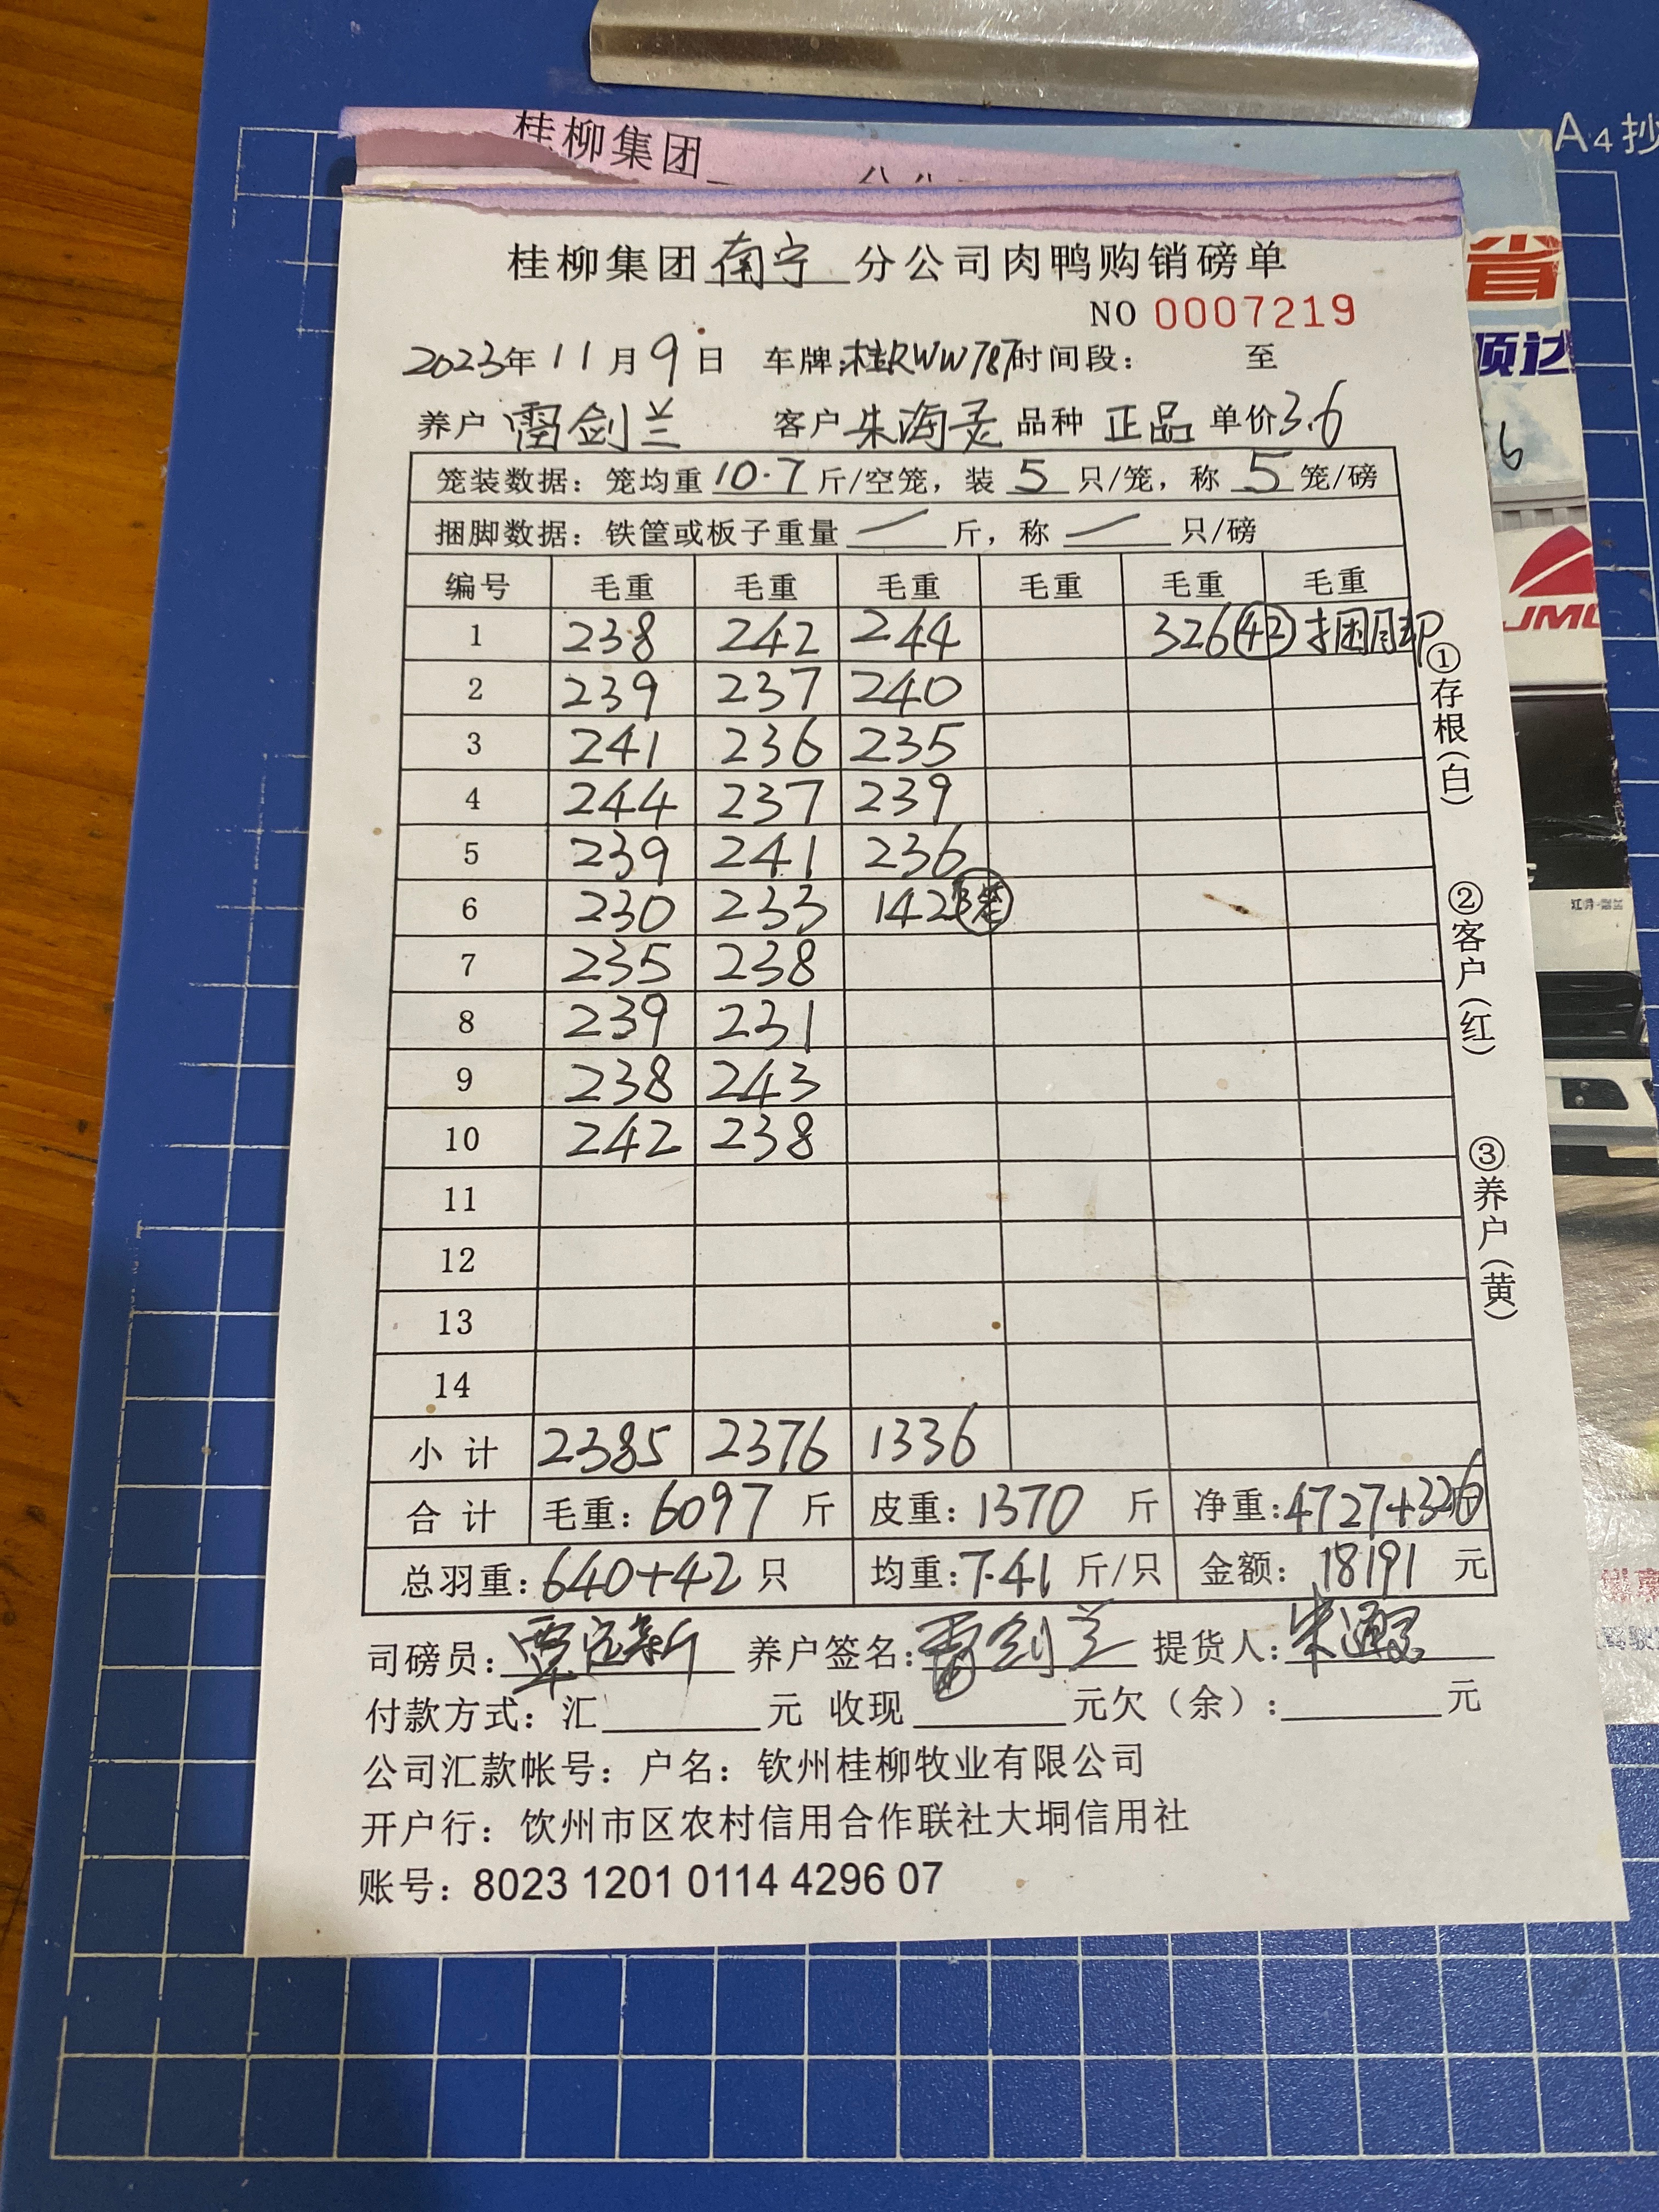 A4抄
桂柳集团
桂柳集团 南宁 分公司肉鸭购销磅单
NO 0007219
2023年 11 月 9 日 车牌:桂RWW787 时间段: 至
养户 雷剑兰 客户 朱海 品种 正品 单价 3.6
笼装数据: 笼均重 10.7 斤/空笼, 装 5 只/笼, 称 5 笼/磅
捆脚数据: 铁筐或板子重量 — 斤, 称 — 只/磅
编号 毛重 毛重 毛重 毛重 毛重 毛重
1 238 242 244 326 (42) 捆脚
2 239 237 240
3 241 236 235
4 244 237 239
5 239 241 236
6 230 233 142 3笼
7 235 238
8 239 231
9 238 243
10 242 238
11
12
13
14
小 计 2385 2376 1336
合 计 毛重: 6097 斤 皮重: 1370 斤 净重: 4727+326 斤
总羽重: 640+42 只 均重: 7.41 斤/只 金额: 18191 元
司磅员: 覃 新 养户签名: 雷剑兰 提货人: 朱
付款方式: 汇 元 收现 元欠（余）: 元
公司汇款帐号: 户名: 钦州桂柳牧业有限公司
开户行: 钦州市区农村信用合作联社大垌信用社
账号: 8023 1201 0114 4296 07
①存根(白)
②客户(红)
③养户(黄)
省
顺达
6
JMC